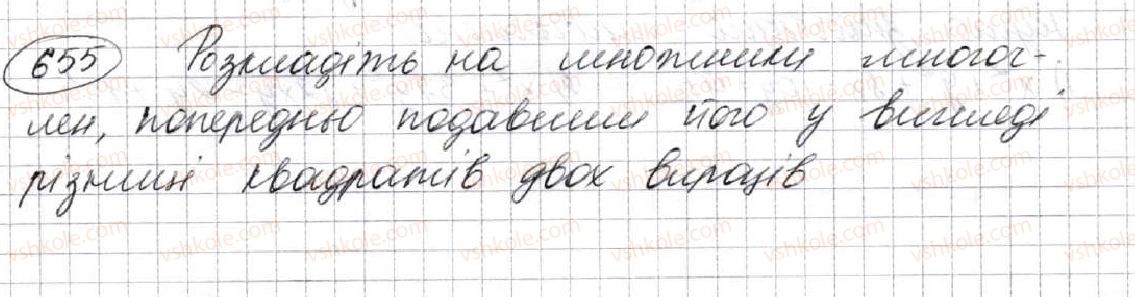 655 Розкладіть на множники многоч-
лен, попередньо подавши його у вигляді
різниці квадратів двох виразів